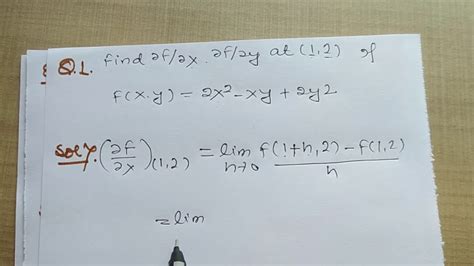 Q.1. Find ∂f/∂x. ∂f/∂y at (1,2) if
f(x.y) = 2x²-xy+2y2
Solⁿ. (∂f/∂x)(1,2) = lim h→0 f(1+h,2)-f(1,2)/h
= lim